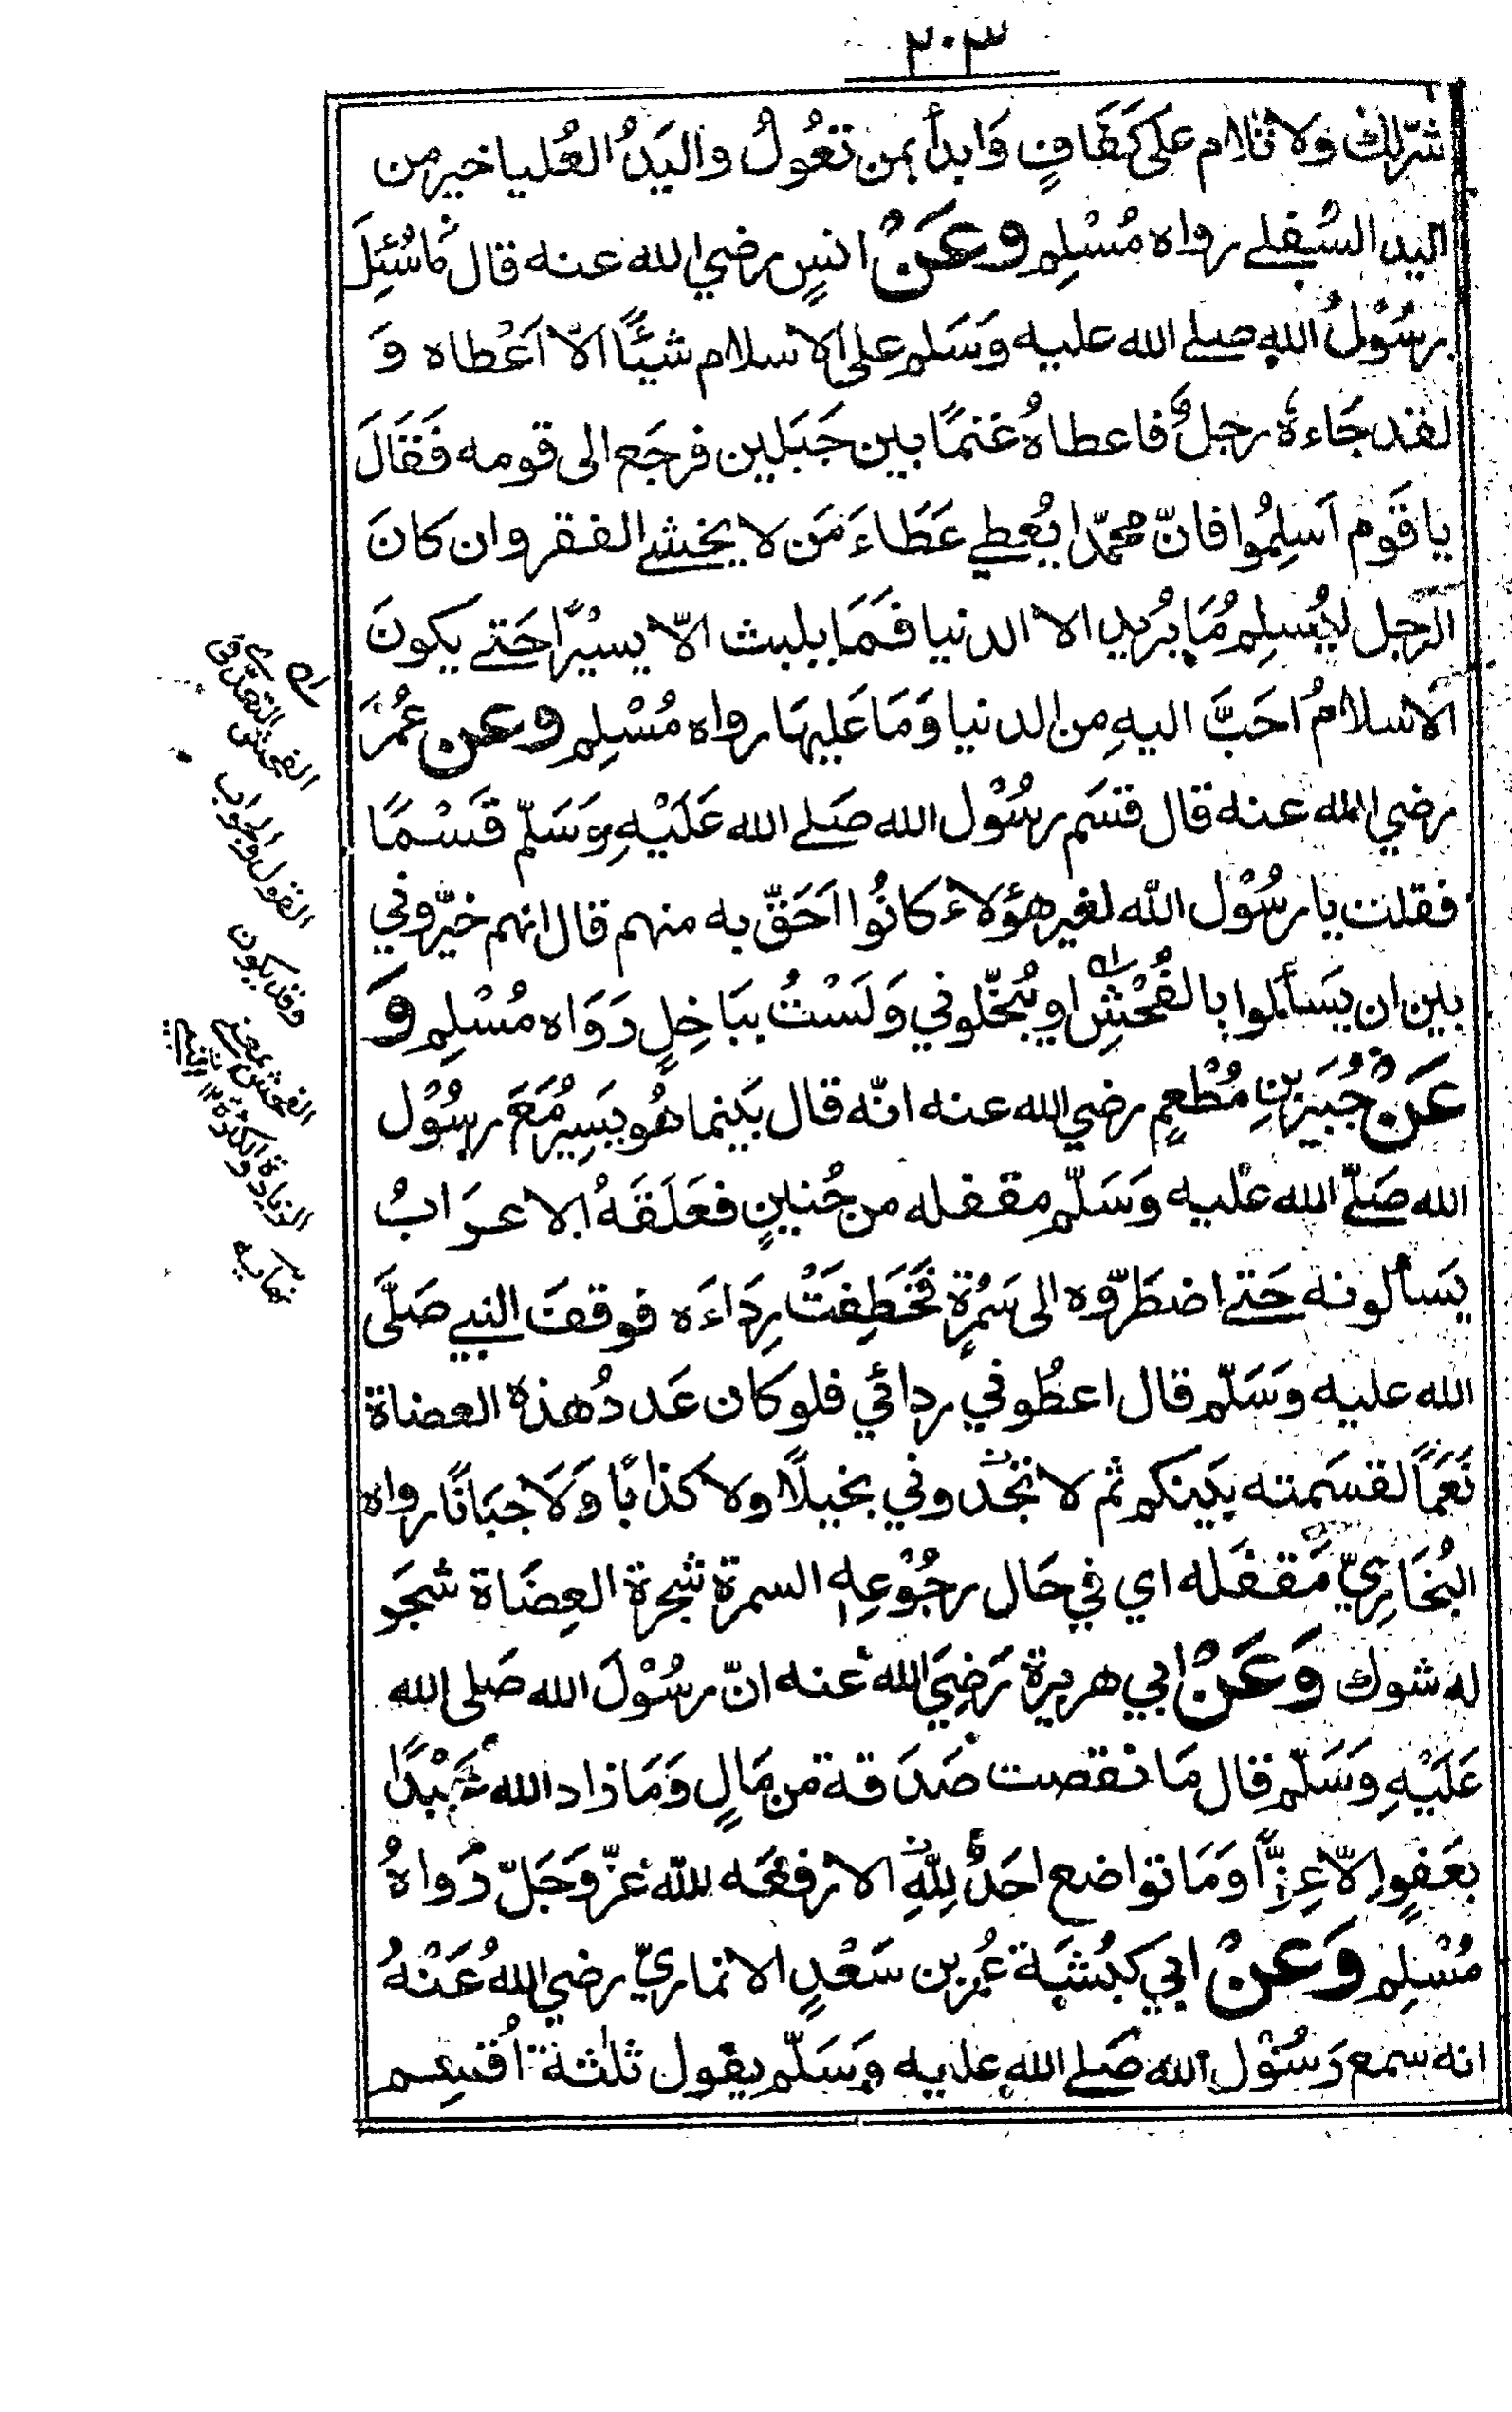 ٢٠٣
شرّلك ولا تلام على كَفَافٍ وَابدأ بمن تعُولُ واليَدُ العُليا خير من
اليد السُفلے رواه مُسْلِم وعَنْ انسٍ رضي الله عنه قال مَا سُئِلَ
رسُوْلُ الله صلے الله عليه وَسَلم على الاسلام شيئًا الّا اَعْطاه وَ
لقد جَاءهُ رجلٌ فاعطاهُ غنمًا بين جَبَلين فرجَع الى قومه فَقَالَ
يا قَوم اَسلِمُوا فانّ محمّدا يُعطے عَطَاءَ مَن لا يخشے الفقر وان كانَ
الرجل ليُسلِم مَا يُريد الا الدنيا فَمَا يلبث الّا يسيْرًا حَتے يكونَ
الاسلامُ احَبَّ اليهِ من الدنيا وَمَا عَليهَا رواه مُسْلِم وعن عُمَرَ
رضي الله عنه قال قسَم رسُوْل الله صَلے الله عَلَيْهِ وَسَلّم قَسْمًا
فقلت يا رسُوْل الله لغير هؤلاء كانُوا اَحَقّ به منهم قال انهم خيّروني
بين ان يَسألوا بالفُحْشِ او يُبَخّلوني وَلَسْتُ ببَاخِلٍ رَوَاه مُسْلِم وَ
عَنْ جُبَيْر بنِ مُطْعِمٍ رضي الله عنه انّه قال بَينما هُو يَسِيرُ مَعَ رسُوْل
الله صَلّے الله عليه وَسَلّم مقفله من حُنينٍ فعَلَقَهُ الاعرَابُ
يَسألونه حَتے اضطَرّوه الى سَمُرةٍ فخَطِفَتْ رِدَاءَه فوقفَ النبي صَلَّى
الله عليه وَسَلّم قال اعطُوني ردائي فلو كان عَددُ هٰذه العضاة
نَعَمًا لقسَمته بَينكم ثم لا تجدوني بخيلًا ولا كذابًا وَلَا جبَانًا رواه
البُخَاريّ مَقفَله اي في حَال رجُوْعِه السمرة شجرة العِضَاة شجَر
له شوك وَعَنْ ابي هريرة رَضِيَ الله عنه انّ رسُوْلَ الله صَلى الله
عَلَيْهِ وَسَلّم قال مَا نقصت صَدَقة من مَالٍ وَمَا زاد الله عَبْدًا
بعَفوٍ الّا عِزًّا وَمَا تواضع احَدٌ للهِ الا رفعَه الله عَزّ وَجَلّ رَواهُ
مُسْلِم وَعَنْ ابي كبْشَة عُمر بن سَعْدٍ الانماريّ رضي اللهُ عَنْهُ
انه سمع رَسُوْل الله صَلے الله عليه وَسَلّم يقول ثلٰثة اُقسِم
الفحش التعدّى في
القول والجواب
وقد يكون
الفحش بمعنے
الزيادة والكثرة ١٢
نهايه